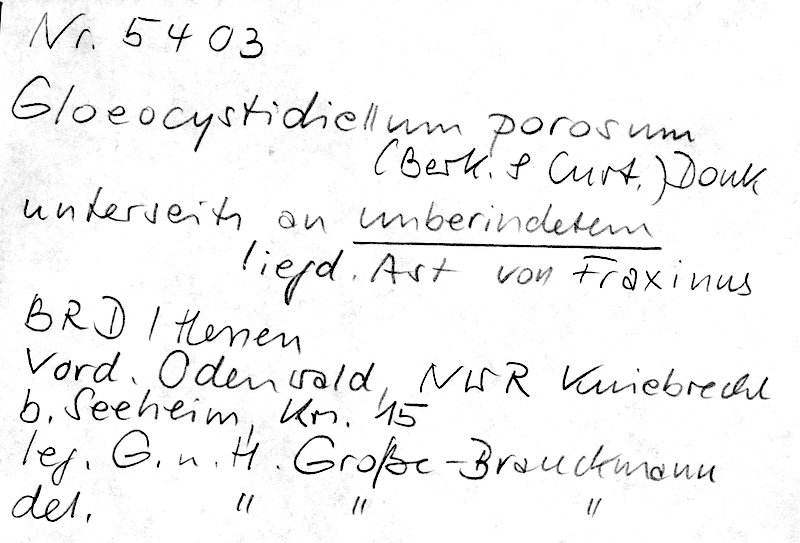 Nr. 5403
Gloeocystidiellum porosum
(Berk. & Curt.) Donk
unterseits an unberindetem
liegd. Ast von Fraxinus
BRD / Hessen
Vord. Odenwald, NWR Kniebrecht
b. Seeheim, Krs. 15
leg. G. u. H. Große-Brauckmann
det. " " "